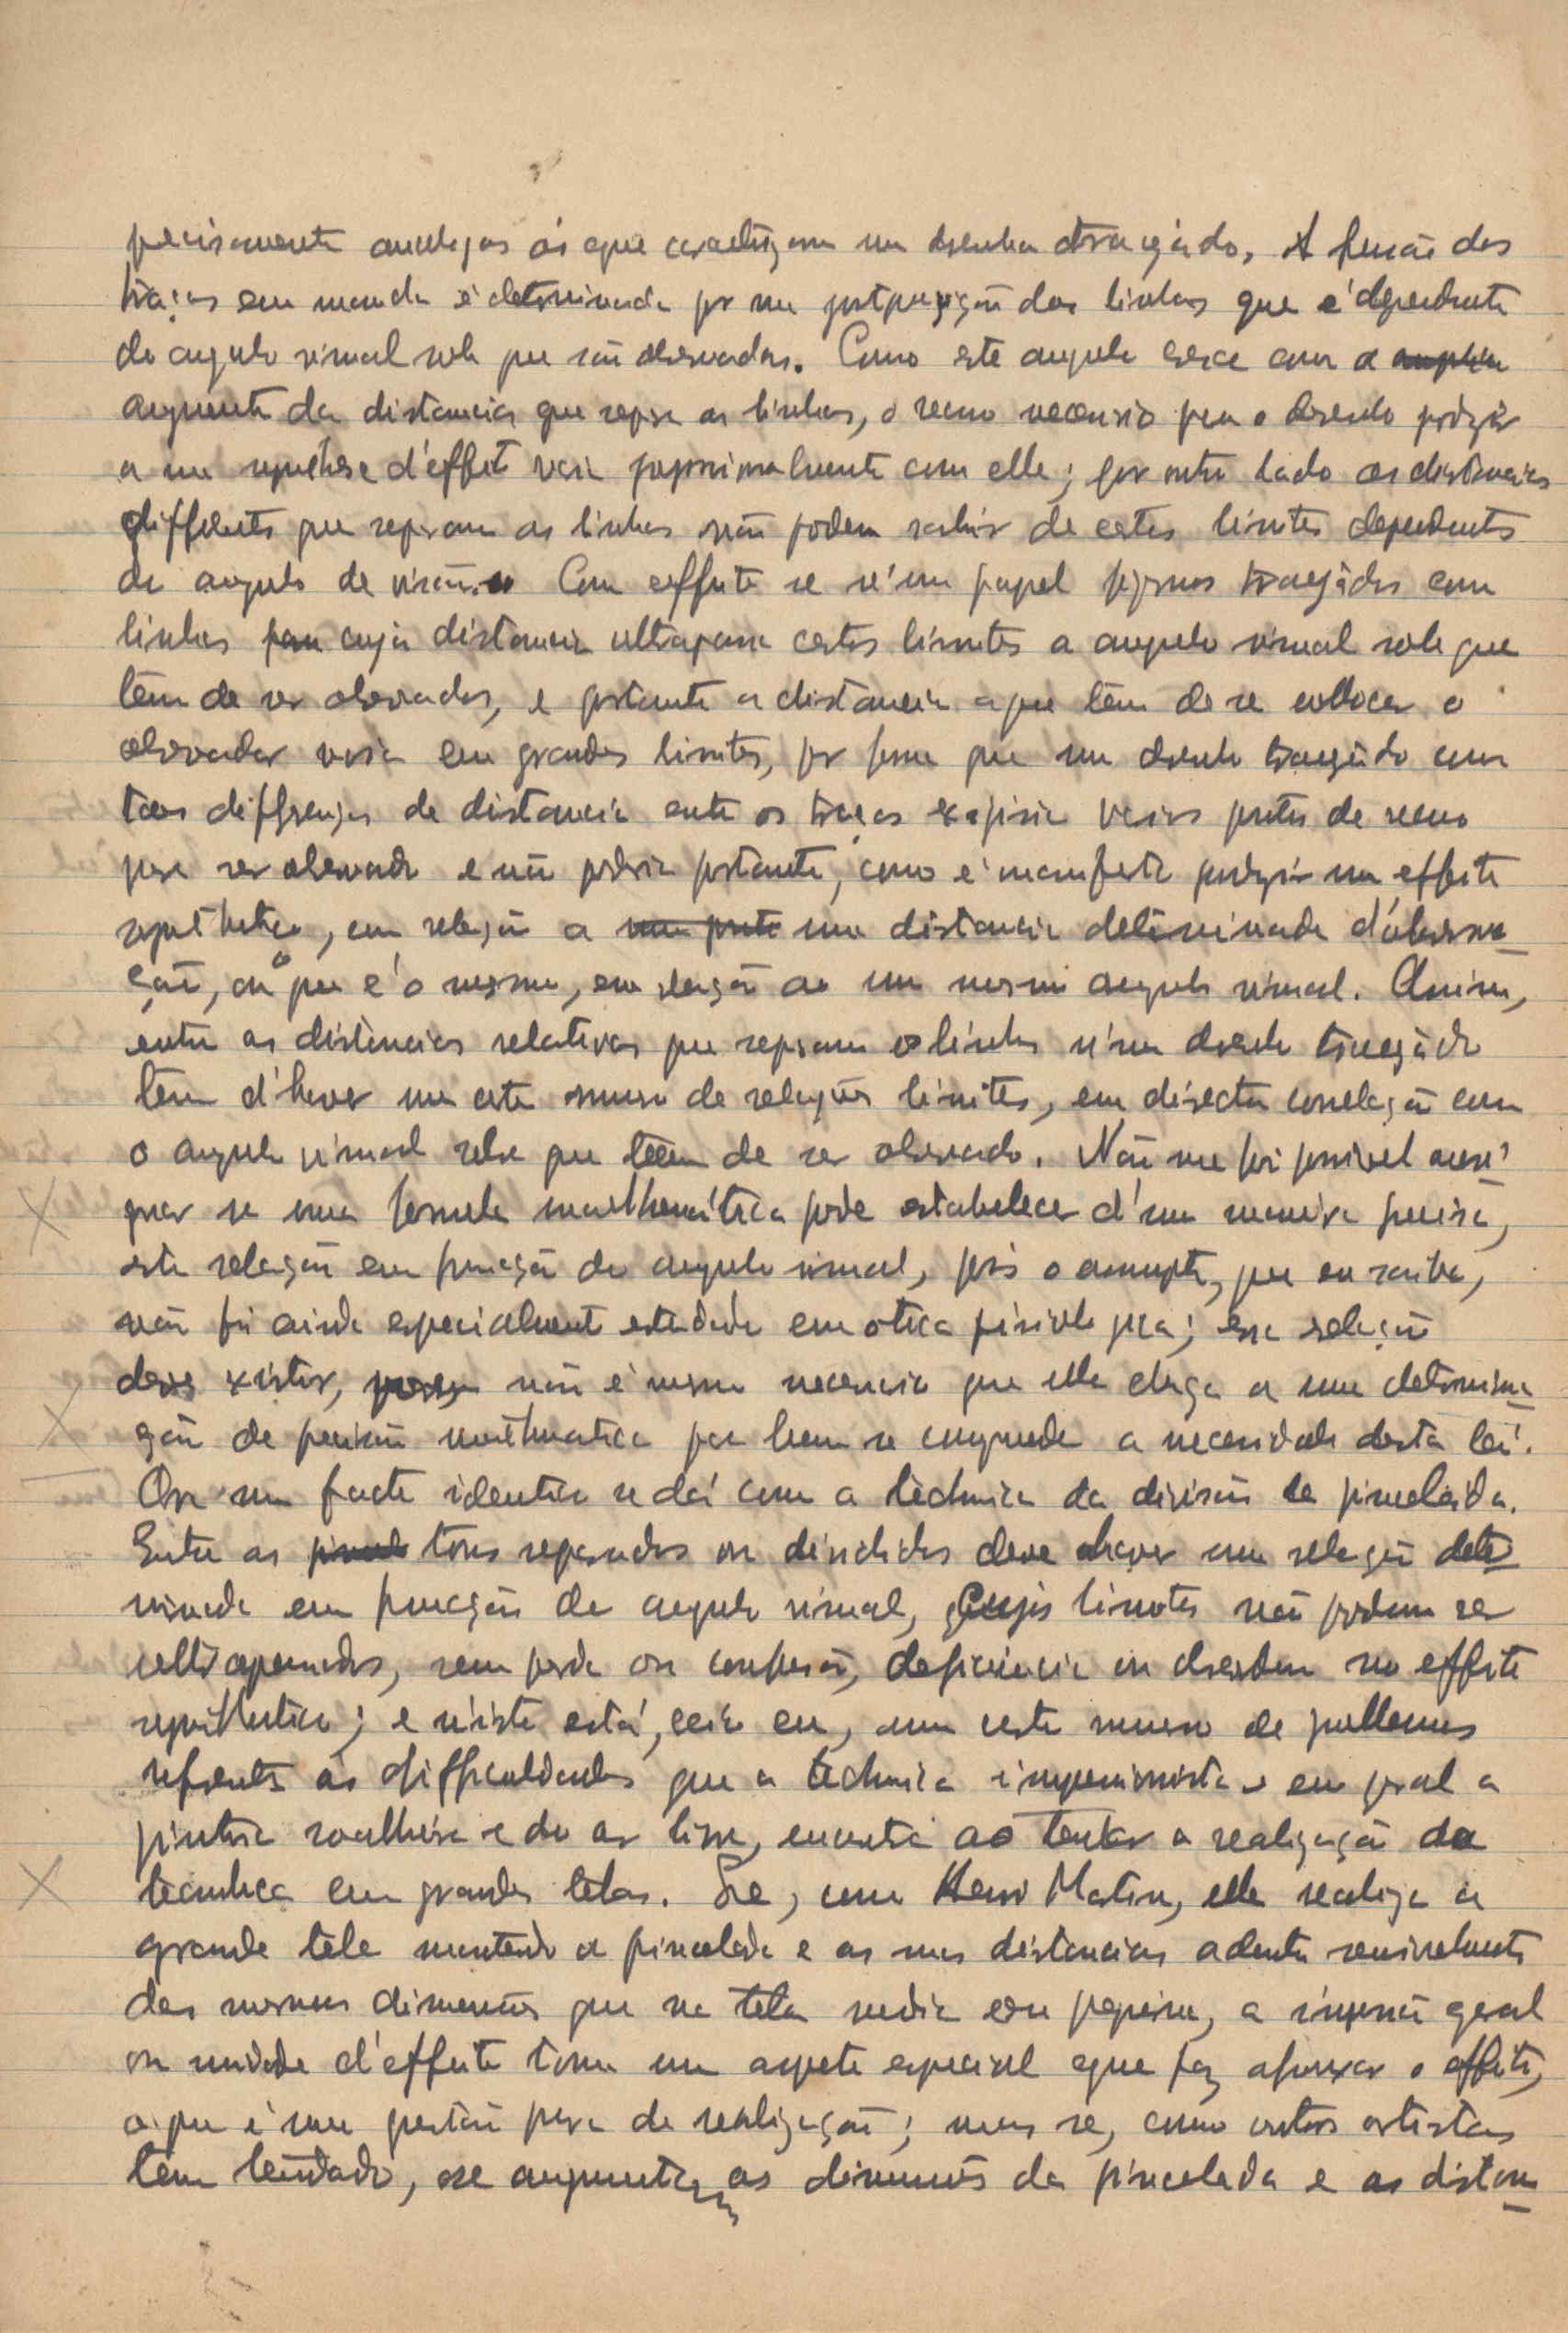 precisamente analogas ás que caractrizam um desenho tracejádo. A fusão dos
traços em mancha é determinada por uma justaposição das linhas que é dependente
do angulo visual sob que são observadas. Como este angulo cresce com o
augmento da distancia que separa as linhas, o recuo necessario para o desenho produzir
a sua synthese d'effeito varia proporcionalmente com elle; por outro lado as distancias
differentes que separam as linhas não podem sahir de certos limites dependentes
do angulo de visão. Com effeito se n'um papel fizermos tracejádos com
linhas cuja distancia ultrapasse certos limites o angulo visual sob que
têm de ser observados, e portanto a distancia a que tem de se collocar o
observador varia em grandes limites, por forma que um desenho tracejádo com
taes differenças de distancia entre os traços exigiria varios pontos de recuo
para ser observado e não poderia portanto, como é manifesto produzir um effeito
synthetico, em relação a uma distancia determinada d'observa-
ção, ou o que é o mesmo, em relação ao um mesmo angulo visual. Assim,
entre as distâncias relativas que separam as linhas n'um desenho tracejádo
tem d'haver um certo numero de relações limites, em directa correlação com
o angulo visual sobre que têem de ser observado. Não me foi possivel averi-
guar se uma formula mathemática póde estabelecer d'uma maneira precisa,
esta relação em funcção do angulo visual, pois o assumpto, que eu saiba,
não foi ainda especialmente estudado em otica fisiologica; essa relação
deve existir, não é mesmo necessario que ella chega a uma determina-
ção de precisão mathematica para bem se comprehender a necessidade desta lei.
Ora um facto identico se dá com a téchnica da divisão da pincelada.
Entre os tons separados ou divididos deve haver uma relação deter-
minada em funcção do angulo visual, cujos limites não podem ser
ultrapassados, sem perda ou confusão, deficiencia ou desordem no effeito
synthetico; e n'isto está, creio eu, um certo numero de problemas
referentes ás difficuldades que a téchnica impressionista e em geral a
pintura soalheira e do ar livre, encontra ao tentar a realização da
téchnica em grandes telas. Se, como Henri Martin, elle realiza a
grande tela mantendo a pincelada e as suas distancias adentro sensivelmente
das mesmas dimensões que na tela media ou pequena, a impressão geral
ou unidade d'effeito toma um aspeto especial que faz afrouxar o effeito,
o que é uma questão pura de realização; mas se, como outros artistas
têm tentado, se augmentam as dimensões da pincelada e as distan-